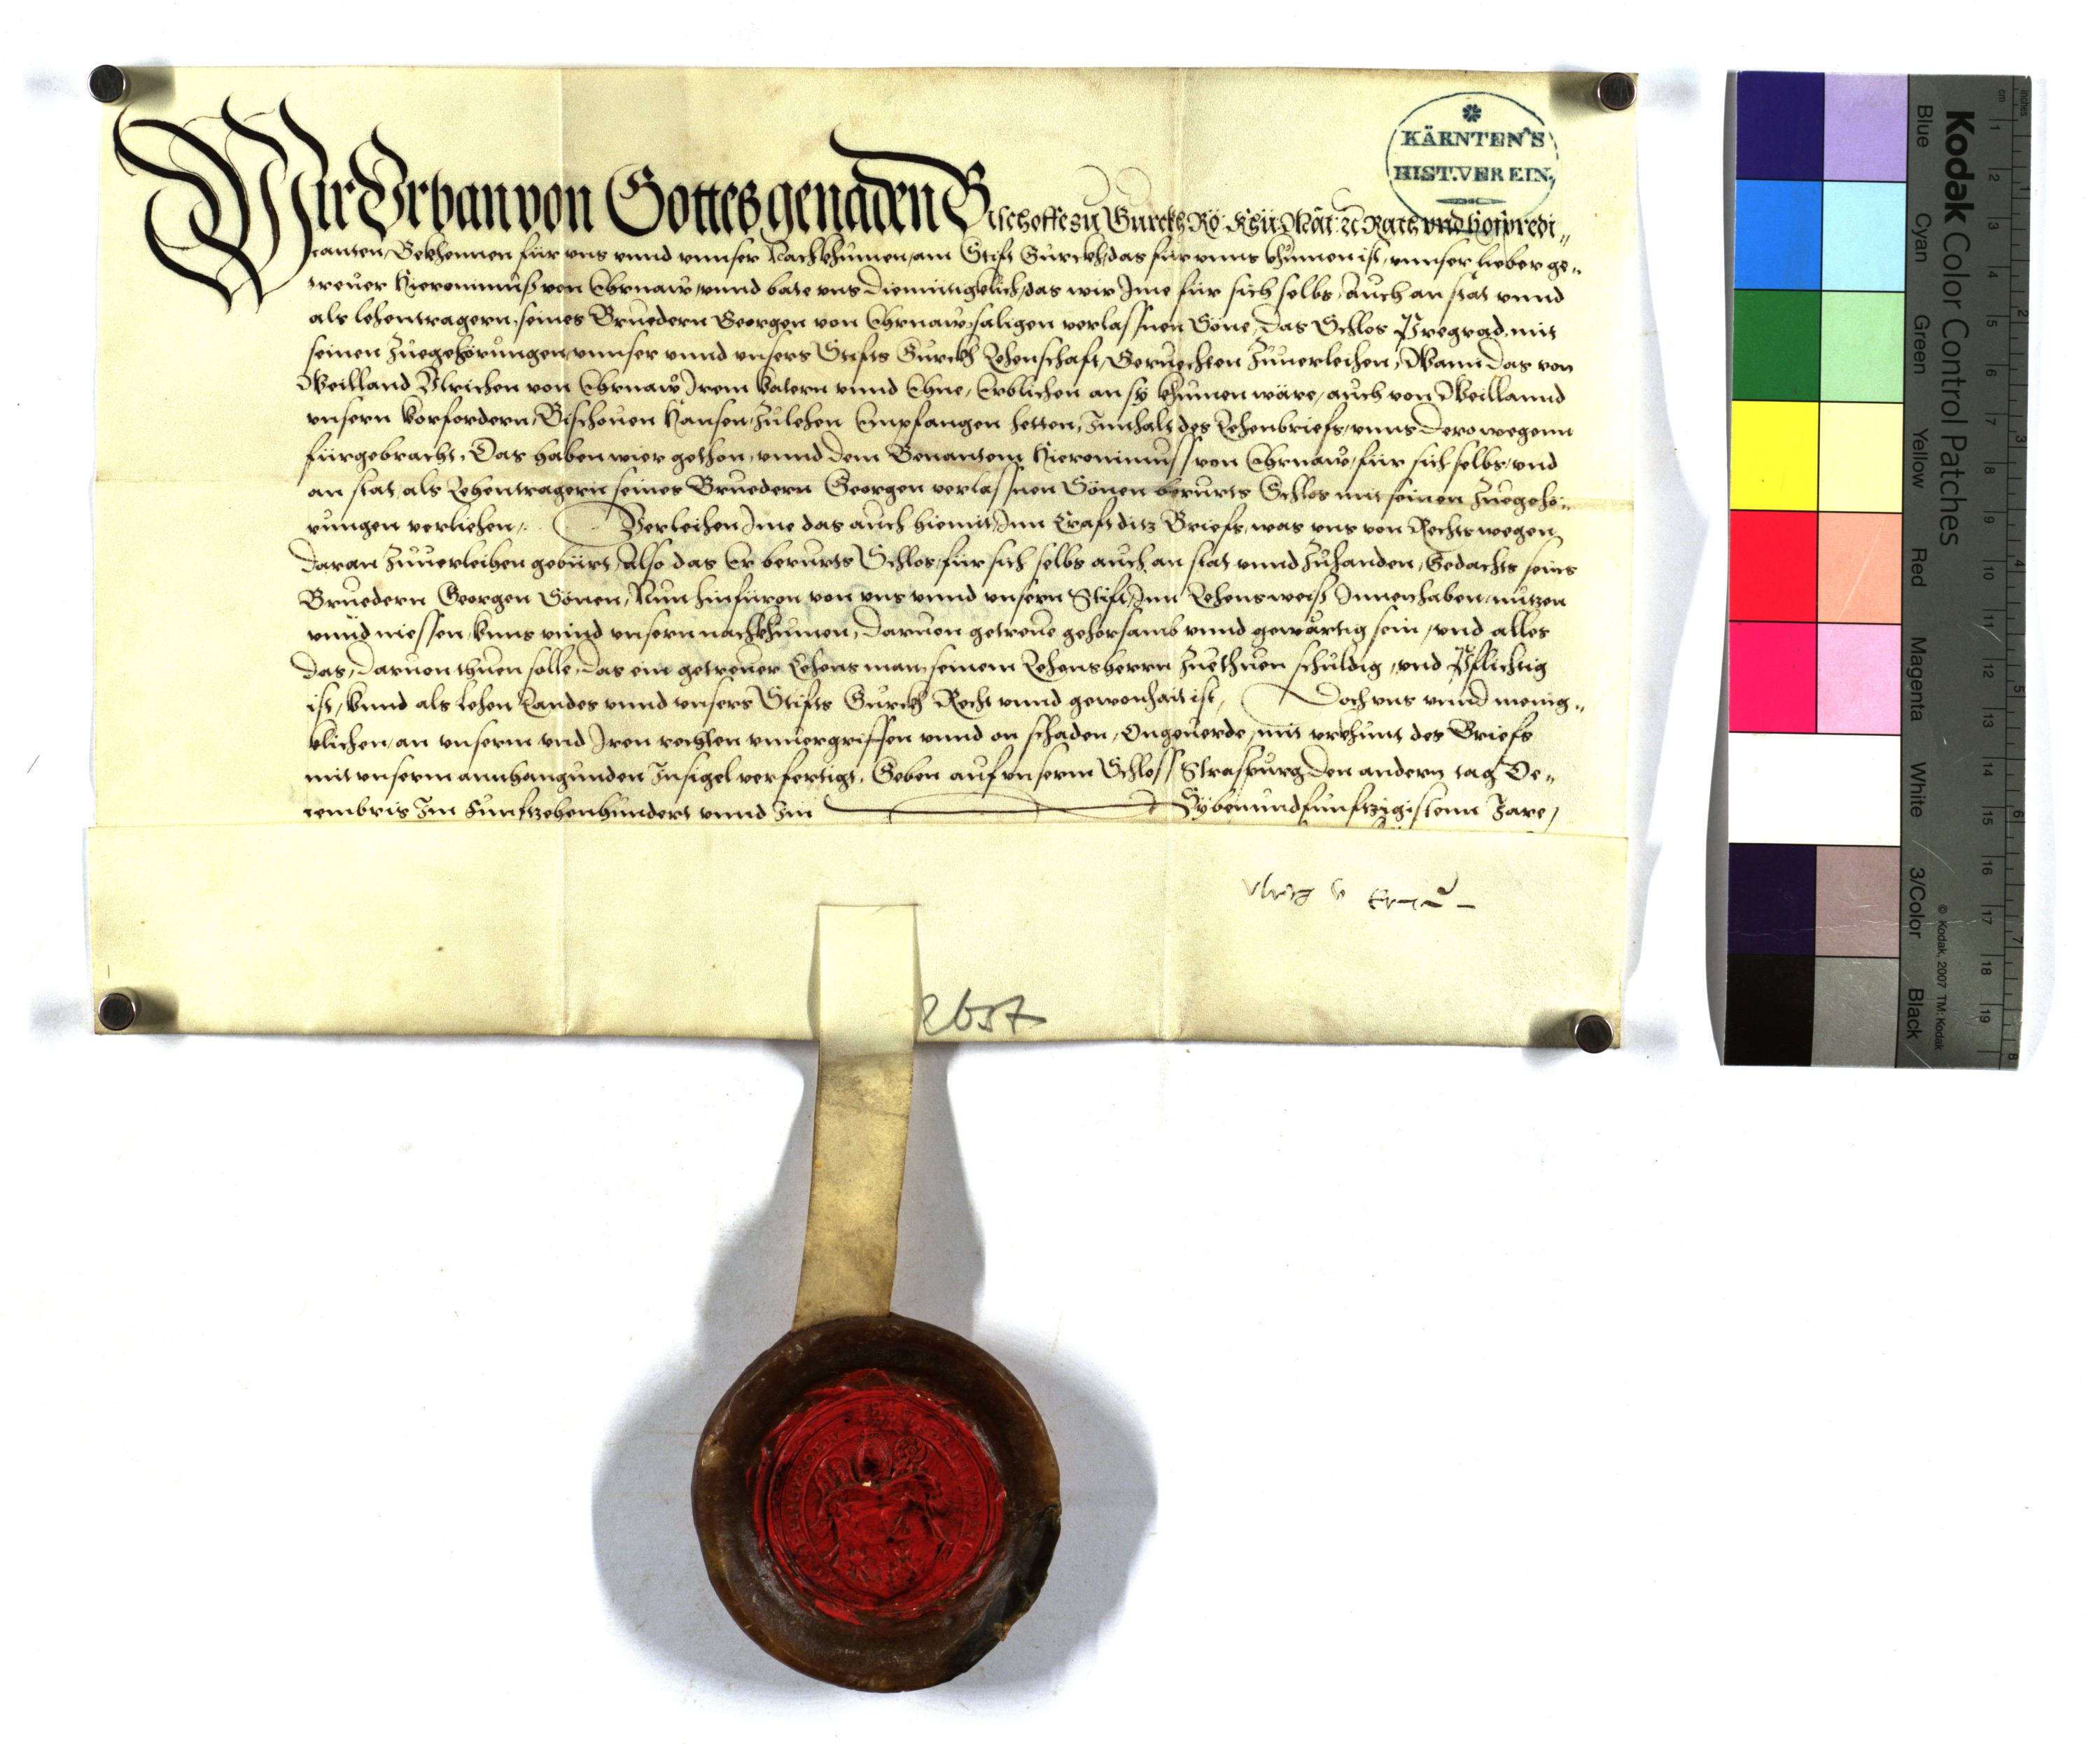 KÄRNTEN'S
HIST. VEREIN
Wir Vrban von Gottes genaden Bischoffe zu Gurckh Rö: Khü: Mät: zc Rath vnd hofpredi„
canten, Bekhennen für vns vnnd vnnser Nachkhumen, am Stifft Gurckh, das für vnns khumen ist, vnnser lieber ge„
treuer Hieronimus von Ehrnaw, vnnd bate vns diemüttigelich, das wir Ime für sich selbs, auch an stat vnnd
als lehentragern, seines Bruedern Georgen von Ehrnaw, saligen verlassnen Söne, das Schlos Pregrad, mit
seinen Zuegehörungen, vnnser vnnd vnsers Stiffts Gurckh Lehenschafft, Geruechten Zuuerleihen, Wann das von
Weilland Vlrichen von Ehrnaw Irem Vatern vnnd Ehne, Erblichen an sy khumen wäre, auch von Weillannd
vnsern Vorfordern, Bischouen Hansen, Zu lehen Empfangen hetten, Innhalt des Lehenbriefs, vnns derowegenn
fürgebracht, Das haben wier gethon, vnnd dem Benanten Hieronimuss von Ehrnaw, für sich selbs, vnd
an stat, als Lehentragern seines Bruedern Georgen verlassnen Sönen berurts Schlos mit seinen Zuegehö„
rungen verliehen, Verleihen Ime das auch hiemit, Inn Crafft ditz Briefs, was vns von Rechts wegen
daran Zuuerleihen gebürt, Also das Er berurts Schlos, für sich selbs auch an stat vnnd Zuhanden, Gedachts seins
Bruedern Georgen Sönen, Nun hinfüron von vns vnnd vnsern Stifft, Inn Lehensweiß Innenhaben, nutzen
vnnd niessen, Vnns vnnd vnsern nachkhumen, daruon getreue gehorsamb vnnd gewärtig sein, vnd alles
das, daruon thuen solle, das ein getreuer Lehensman seinem Lehensherrn Zuethuen schuldig, vnd Pflichtig
ist, Vnnd als lehen Landes vnnd vnsers Stiffts Gurckh Recht vnnd gewonhait ist, Doch vns vnnd menig„
clichen, an vnserm vnd Iren rechten vnuergriffen vnnd on schaden, Ongeuerde, mit vrkhunt des Briefs
mit vnserm annhangunden Insigel verfertigt, Geben auf vnserm Schloss Straspurg den andern tag De„
cembris Im Funfftzehenhundert vnnd Im Sybenundfunfftzigistenn Jare,
Vlrich v Ernaw
2657
Kodak Color Control Patches
Blue Cyan Green Yellow Red Magenta White 3/Color Black
© Kodak, 2007 TM: Kodak
cm 1 2 3 4 5 6 7 8 9 10 11 12 13 14 15 16 17 18 19
inches 1 2 3 4 5 6 7 8